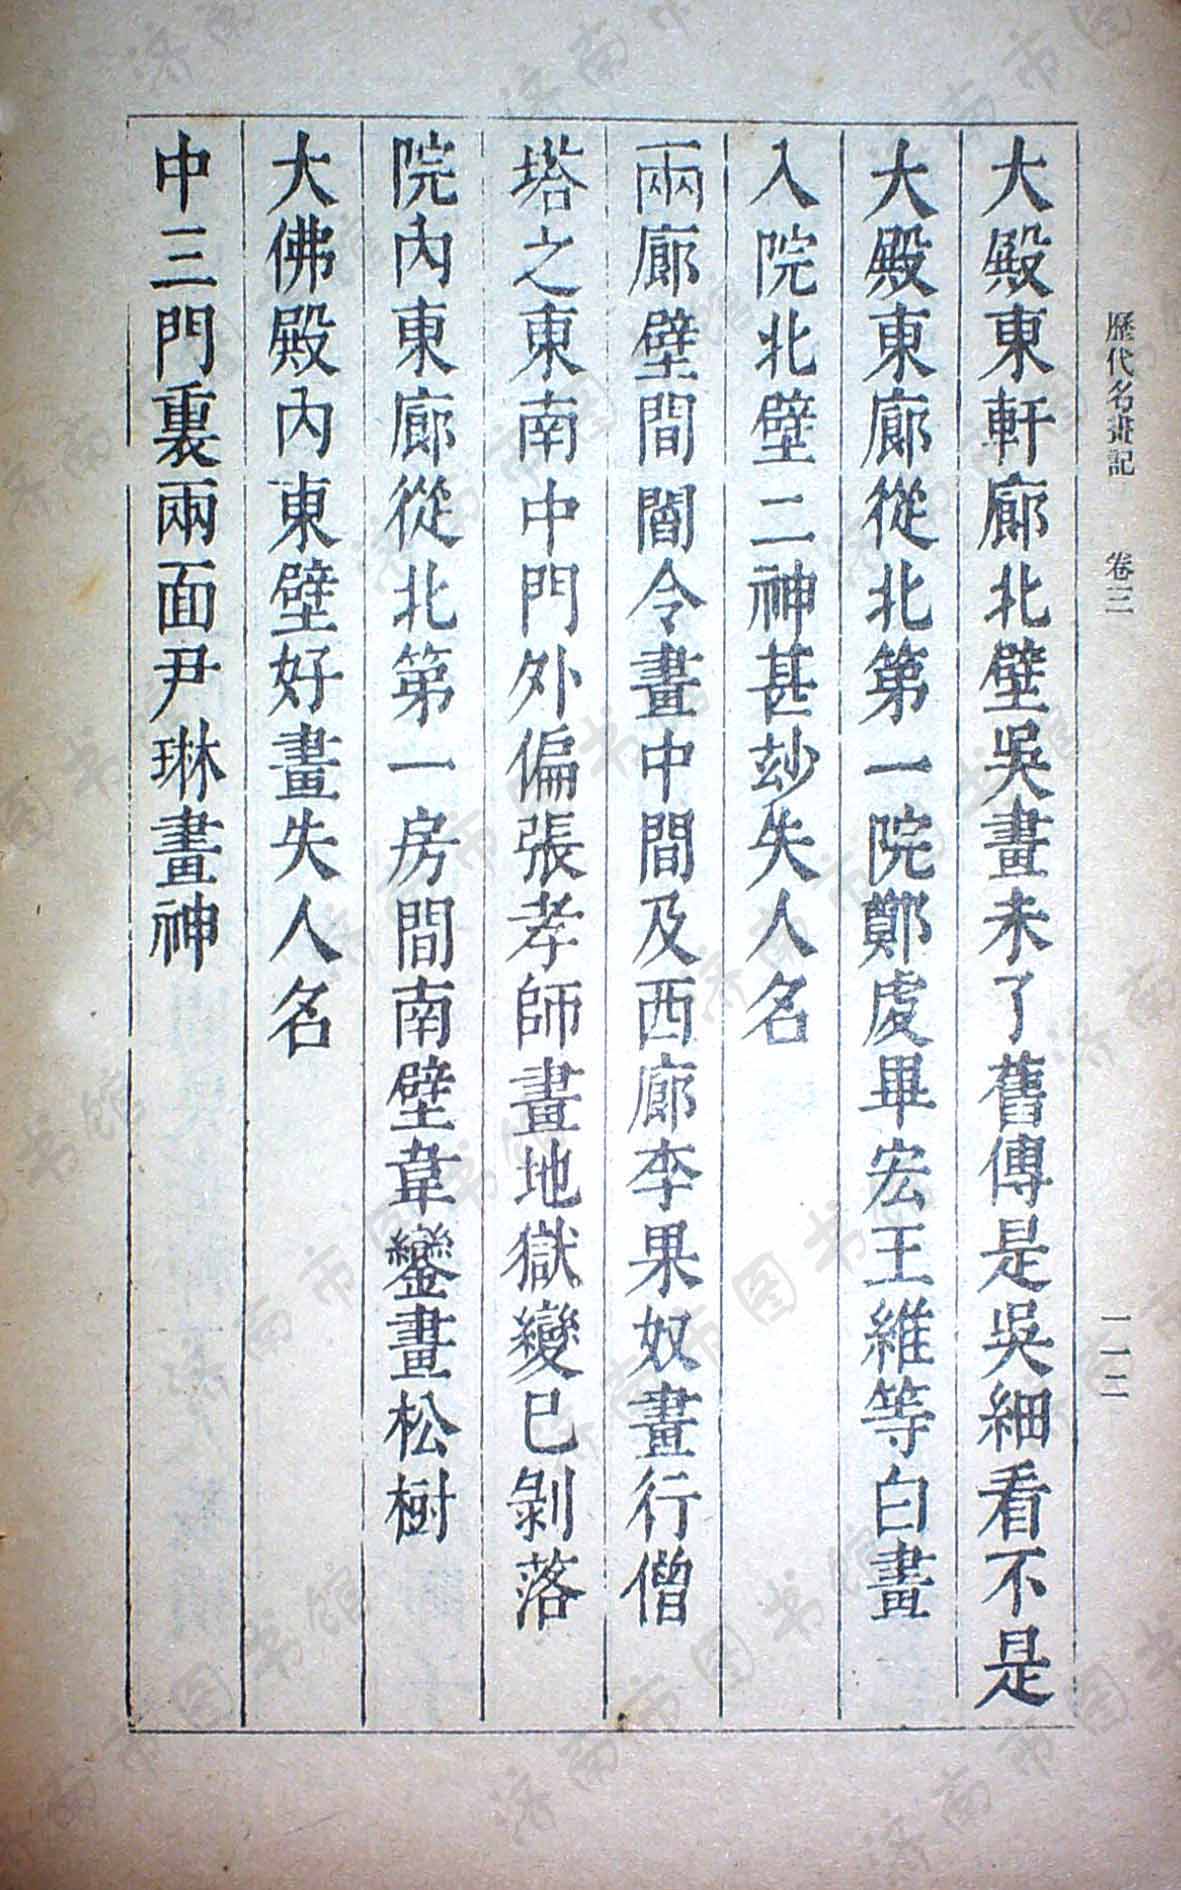 歷代名畫記　卷三　一一二
大殿東軒廊北壁吳畫未了舊傳是吳細看不是
大殿東廊從北第一院鄭虔畢宏王維等白畫
入院北壁二神甚玅失人名
兩廊壁間閻令畫中間及西廊李果奴畫行僧
塔之東南中門外偏張孝師畫地獄變已剝落
院內東廊從北第一房間南壁韋鑾畫松樹
大佛殿內東壁好畫失人名
中三門裏兩面尹琳畫神
济南市图书馆